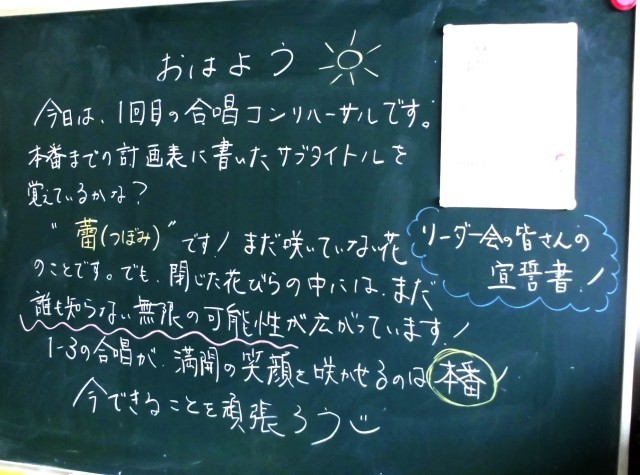 おはよう
今日は、1回目の合唱コンリハーサルです。
本番までの計画表に書いたサブタイトルを
覚えているかな?
"蕾(つぼみ)"です!まだ咲いていない花
のことです。でも、閉じた花びらの中には、まだ
誰も知らない無限の可能性が広がっています!
1-3の合唱が、満開の笑顔を咲かせるのは本番!
今できることを頑張ろう
リーダー会の皆さんの
宣誓書!